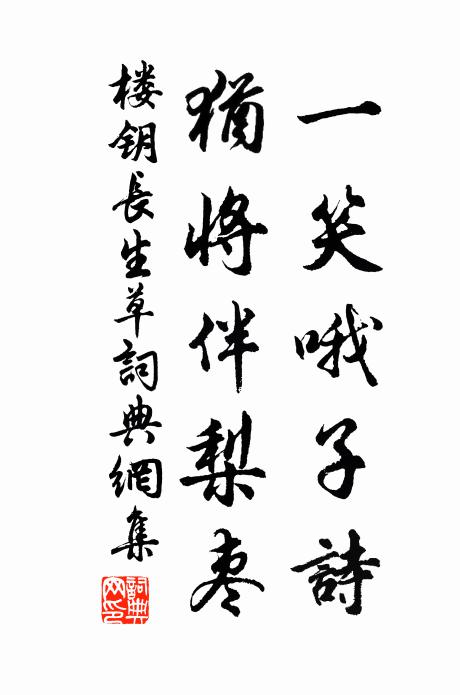 一笑哦子詩
猶將伴梨枣
楼钥長生草詞典網集
詞典網印